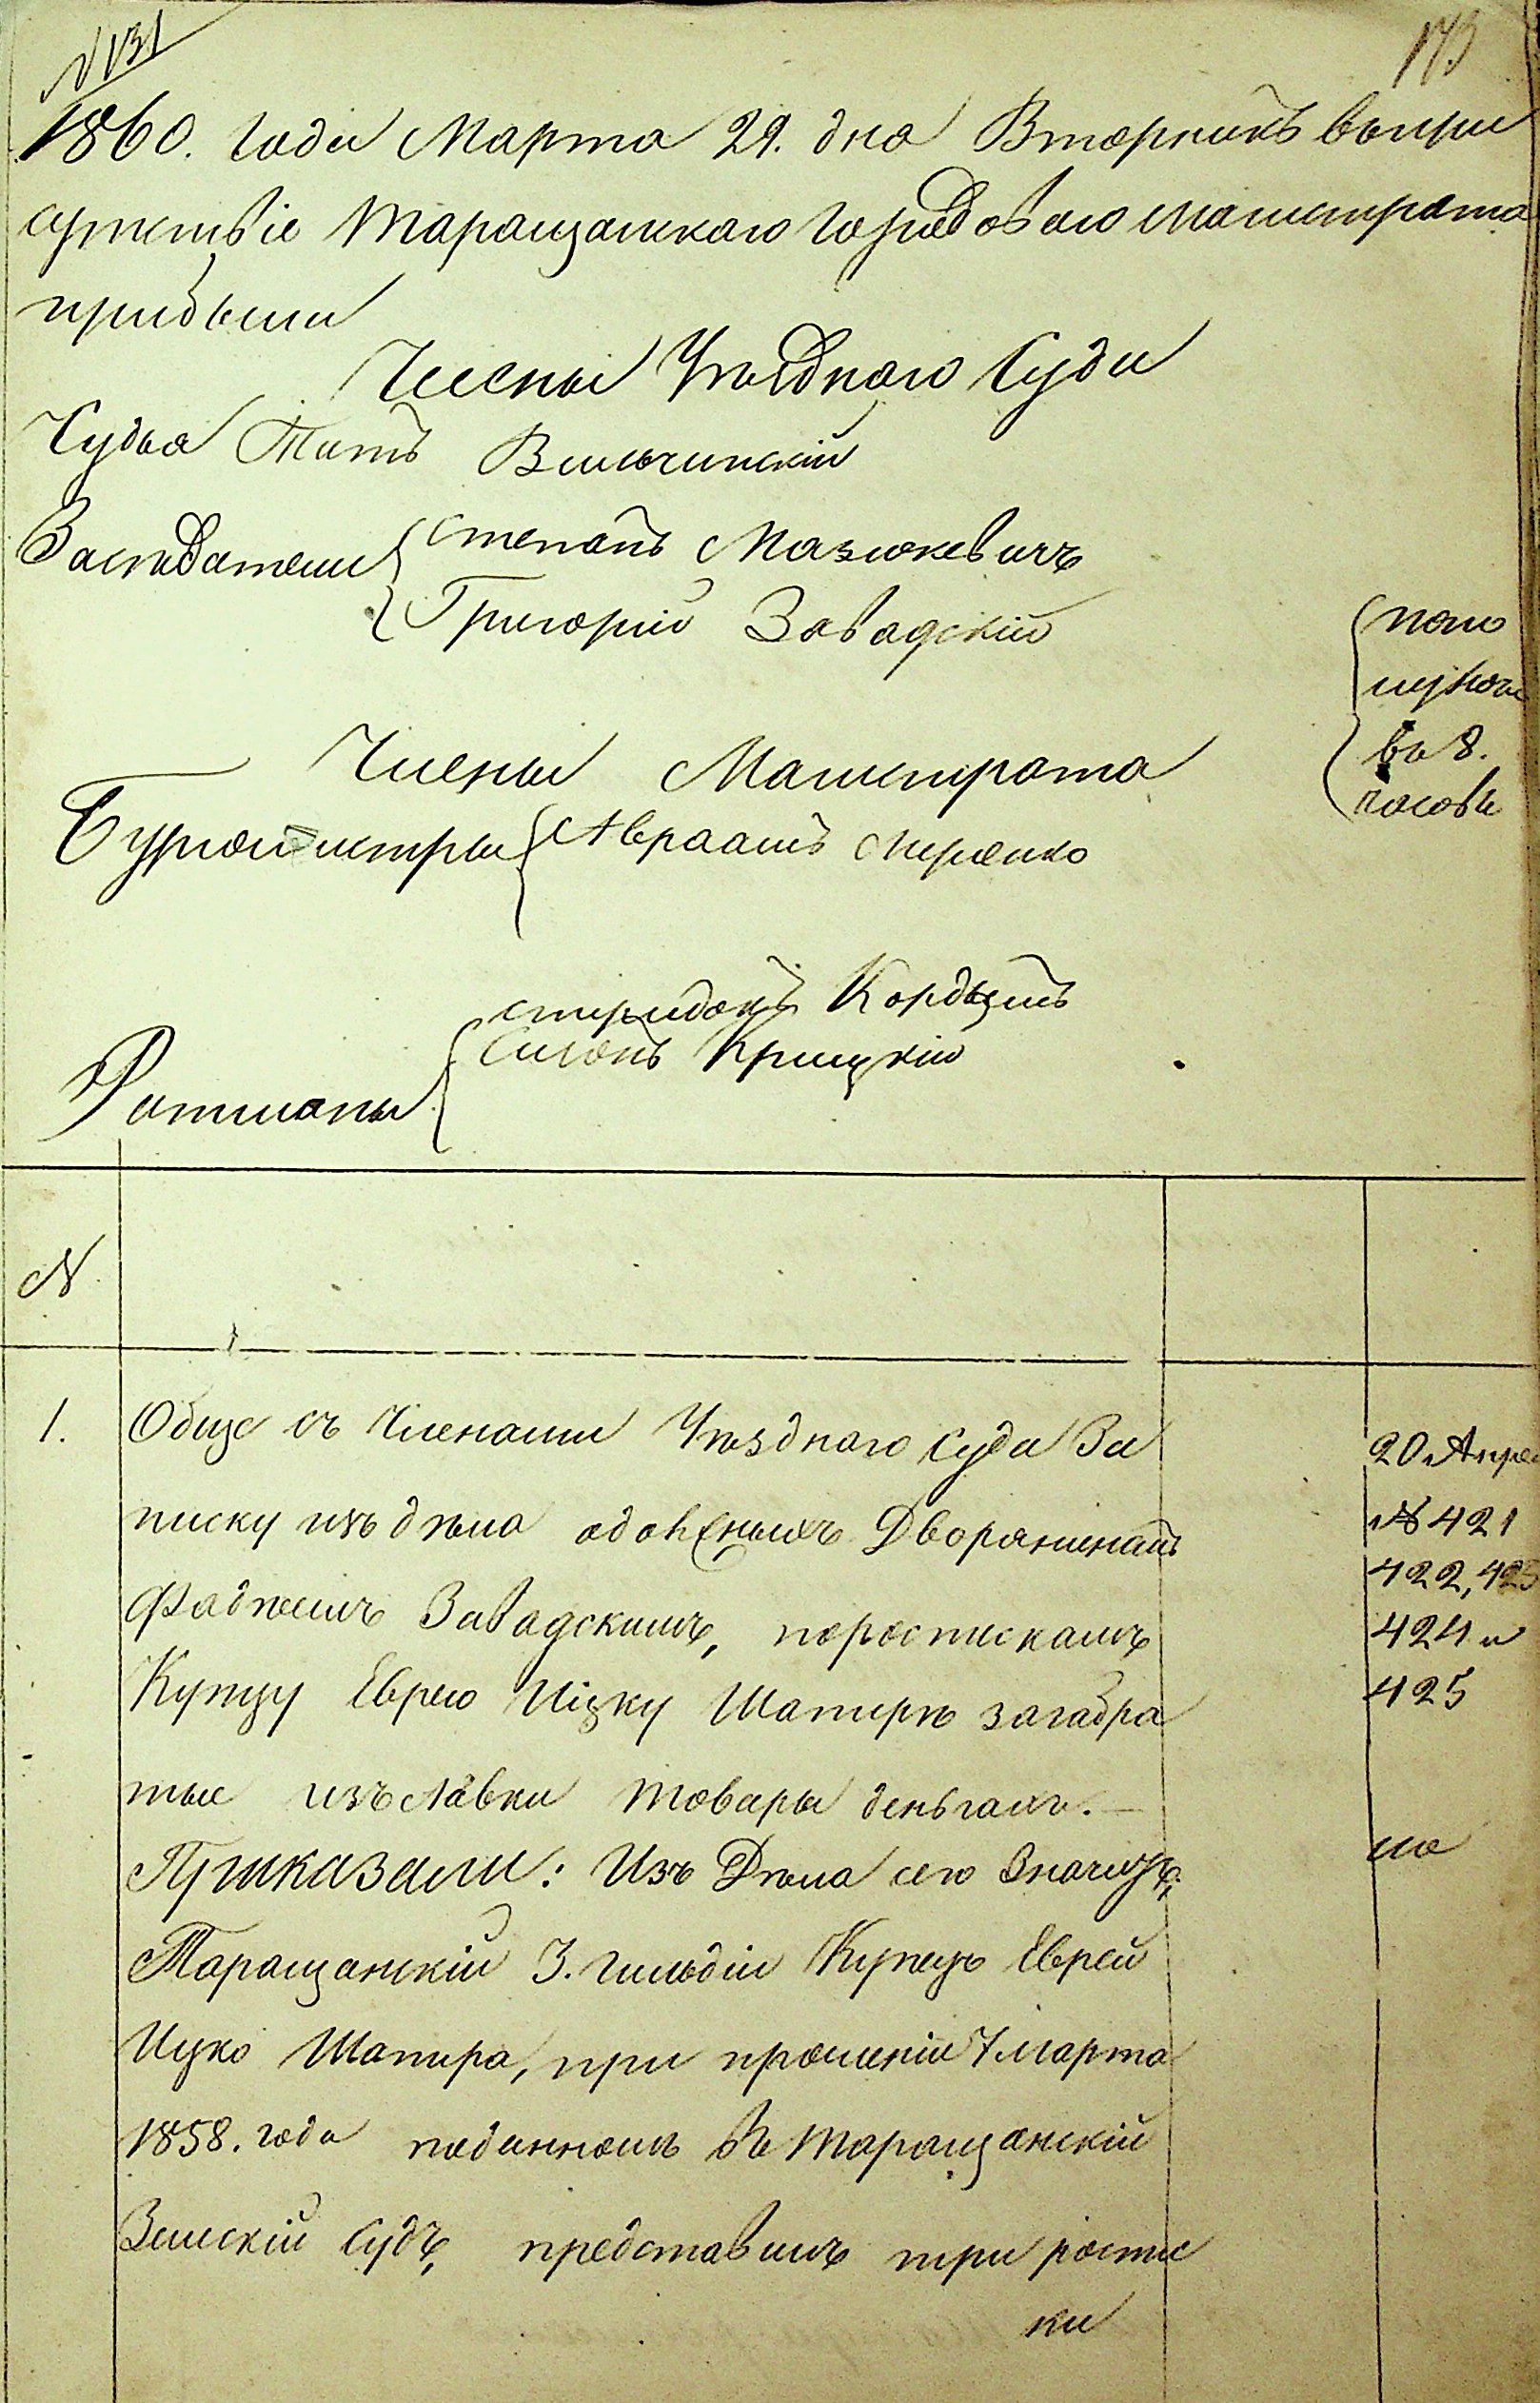 N 131
173
1860. года Марта 29. дня Вторникъ въ при
сутствіе Таращанскаго Городоваго Магистрата
прибыли
Члены Уѣзднаго Суда
Судья Титъ Вильчинскій
Засѣдатели Степанъ Мазюкевичъ
Григорій Завадскій
по по
луночи
въ 8.
часовъ
Члены Магистрата
Бургомистры Авраамъ
Спиридонъ
Симонъ Крицкій
Ратманы
N
1. Обще съ Членами Уѣзднаго Суда За
писку изъ дѣла о должныхъ Дворяниномъ
Фадѣемъ Завадскимъ, по роспискамъ
Купцу Еврею Ицку Шапирѣ за забра
тые изъ Лавки товары деньгахъ.—
Приказали: Изъ Дѣла сего Значитъ,
Таращанскій 3. гильдіи Купецъ Еврей
Ицко Шапира, при прошеніи 7 марта
1858. года поданномъ въ Таращанскій
Земскій Судъ, представилъ три роспис
ки
20 Апре
N 421
422, 423
424 и
425